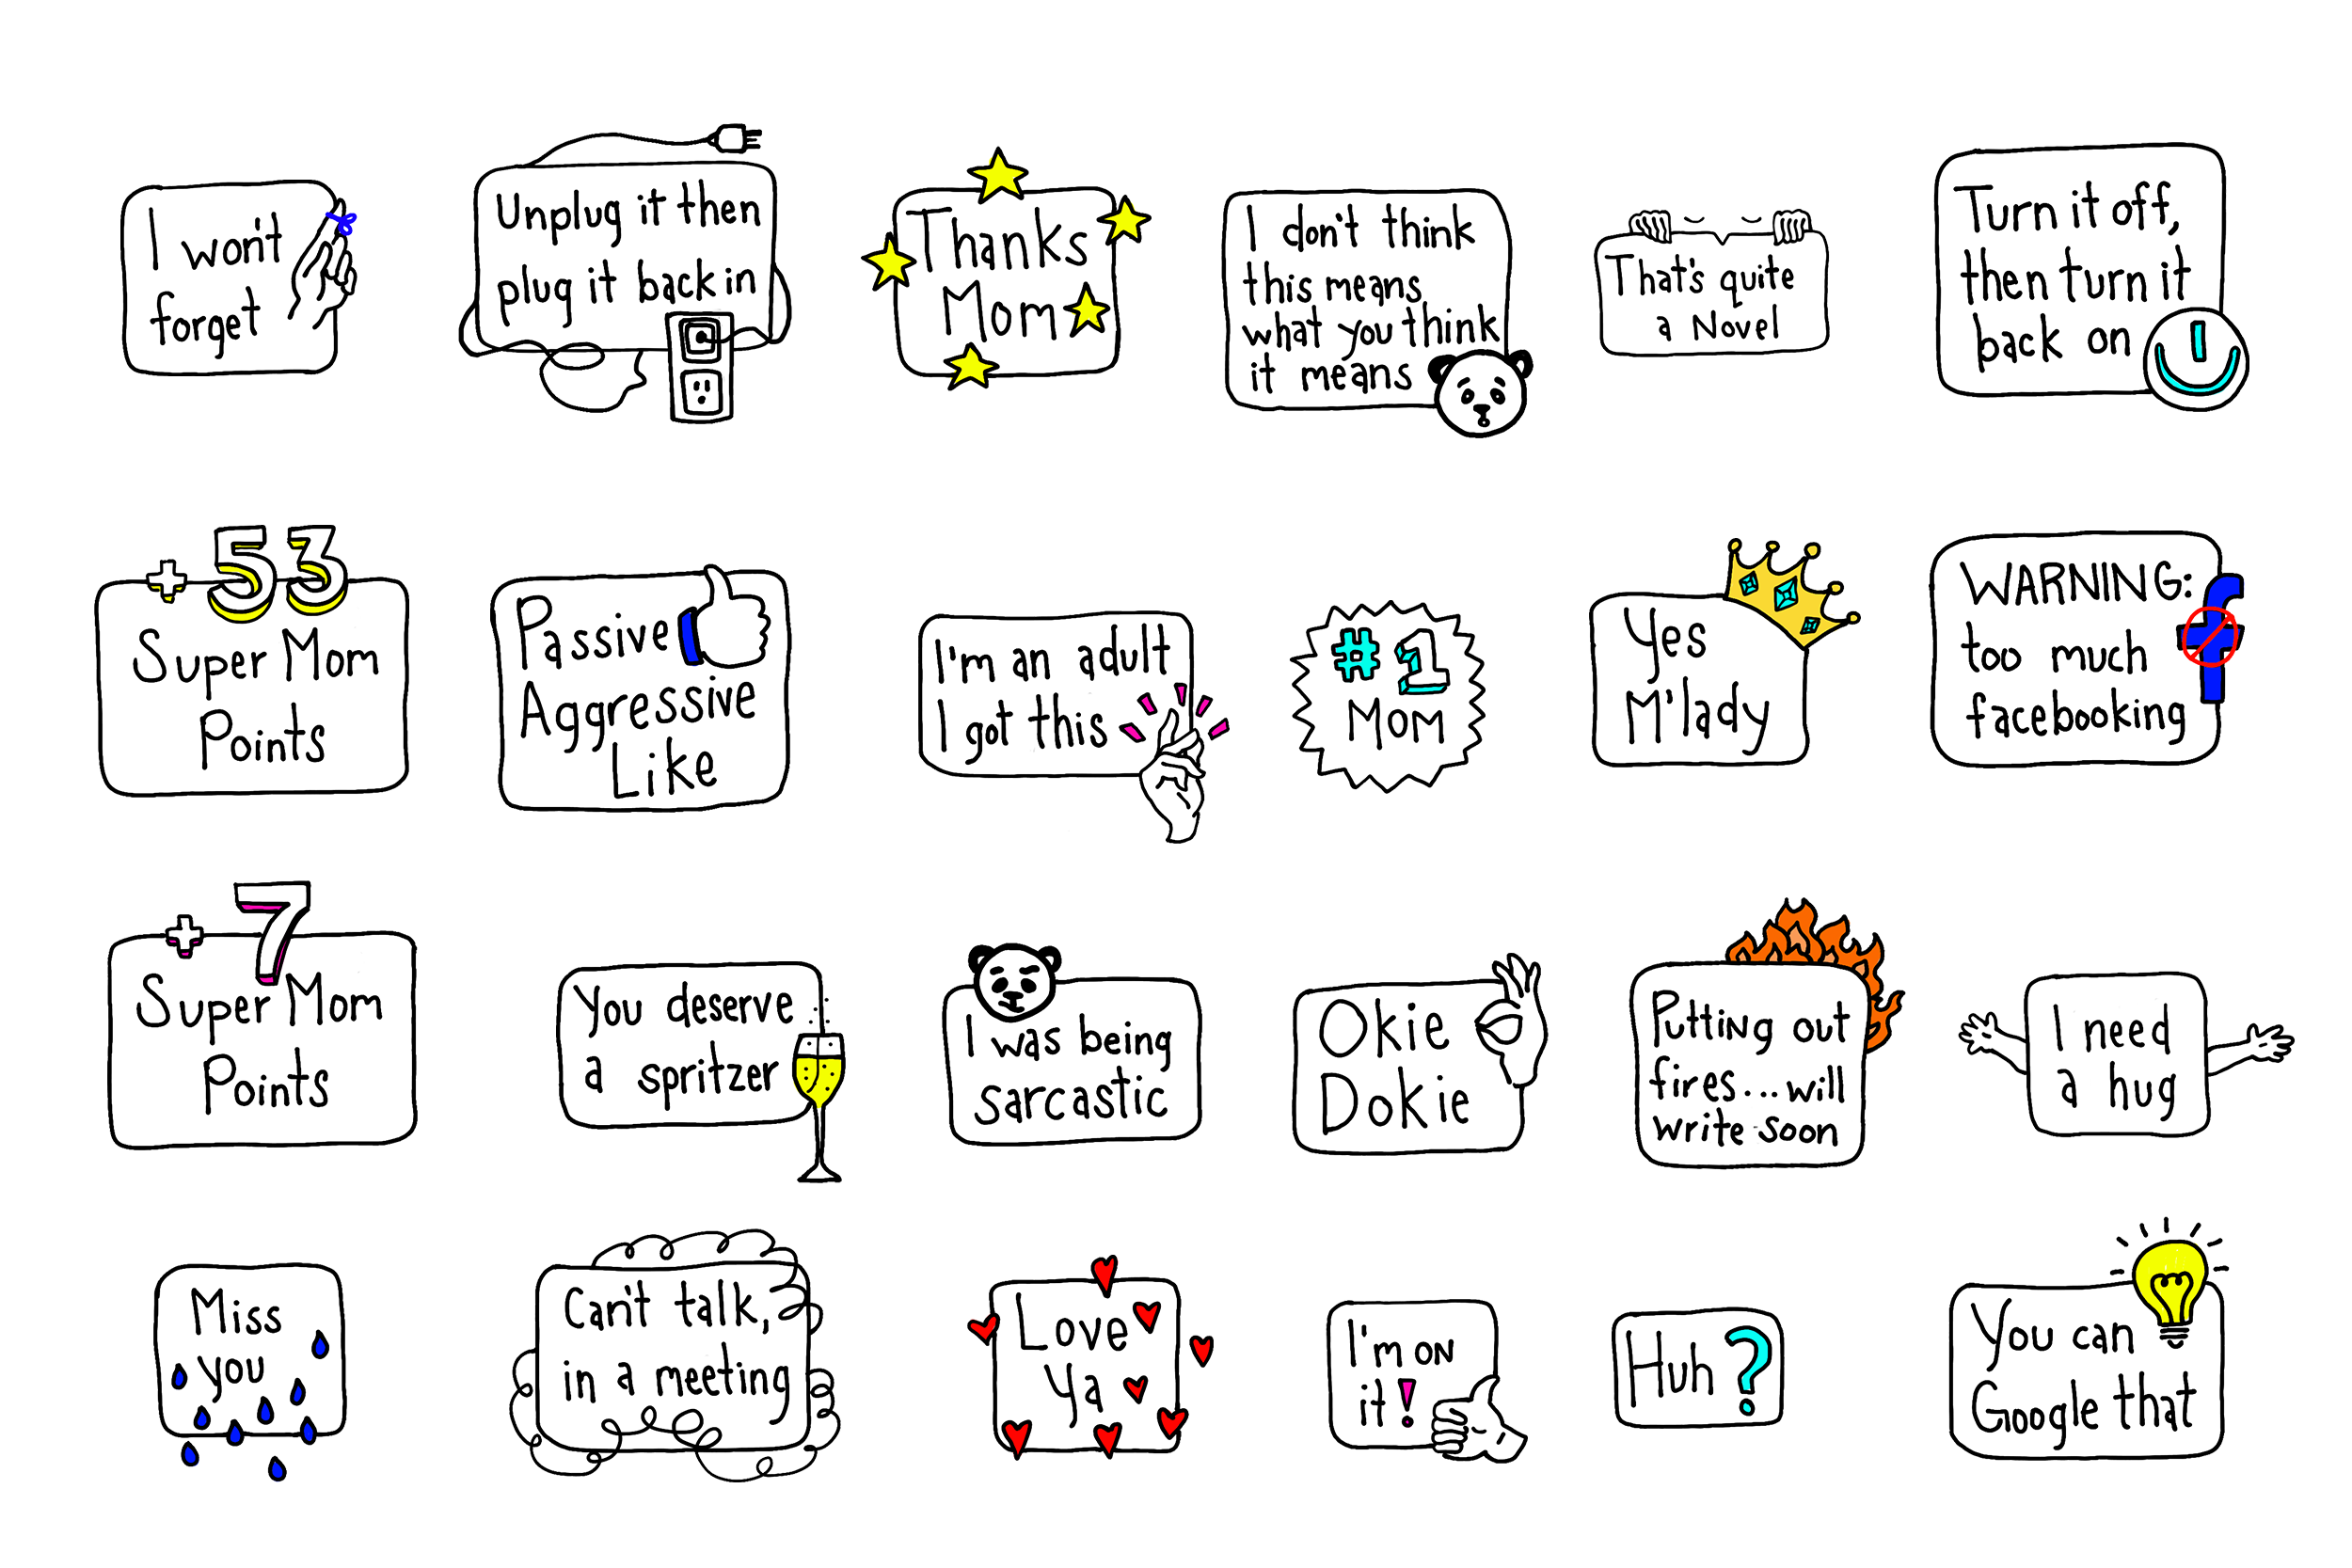 I won't
forget
Unplug it then
plug it back in
Thanks
Mom
I don't think
this means
what you think
it means
That's quite
a Novel
Turn it off,
then turn it
back on
+53
Super Mom
Points
Passive
Aggressive
Like
I'm an adult
I got this
#1
MOM
Yes
M'lady
WARNING:
too much
facebooking
f
+7
Super Mom
Points
You deserve
a spritzer
I was being
sarcastic
Okie
Dokie
Putting out
fires...will
write soon
I need
a hug
Miss
you
Can't talk,
in a meeting
Love
Ya
I'm ON
it!
Huh?
You can
Google that